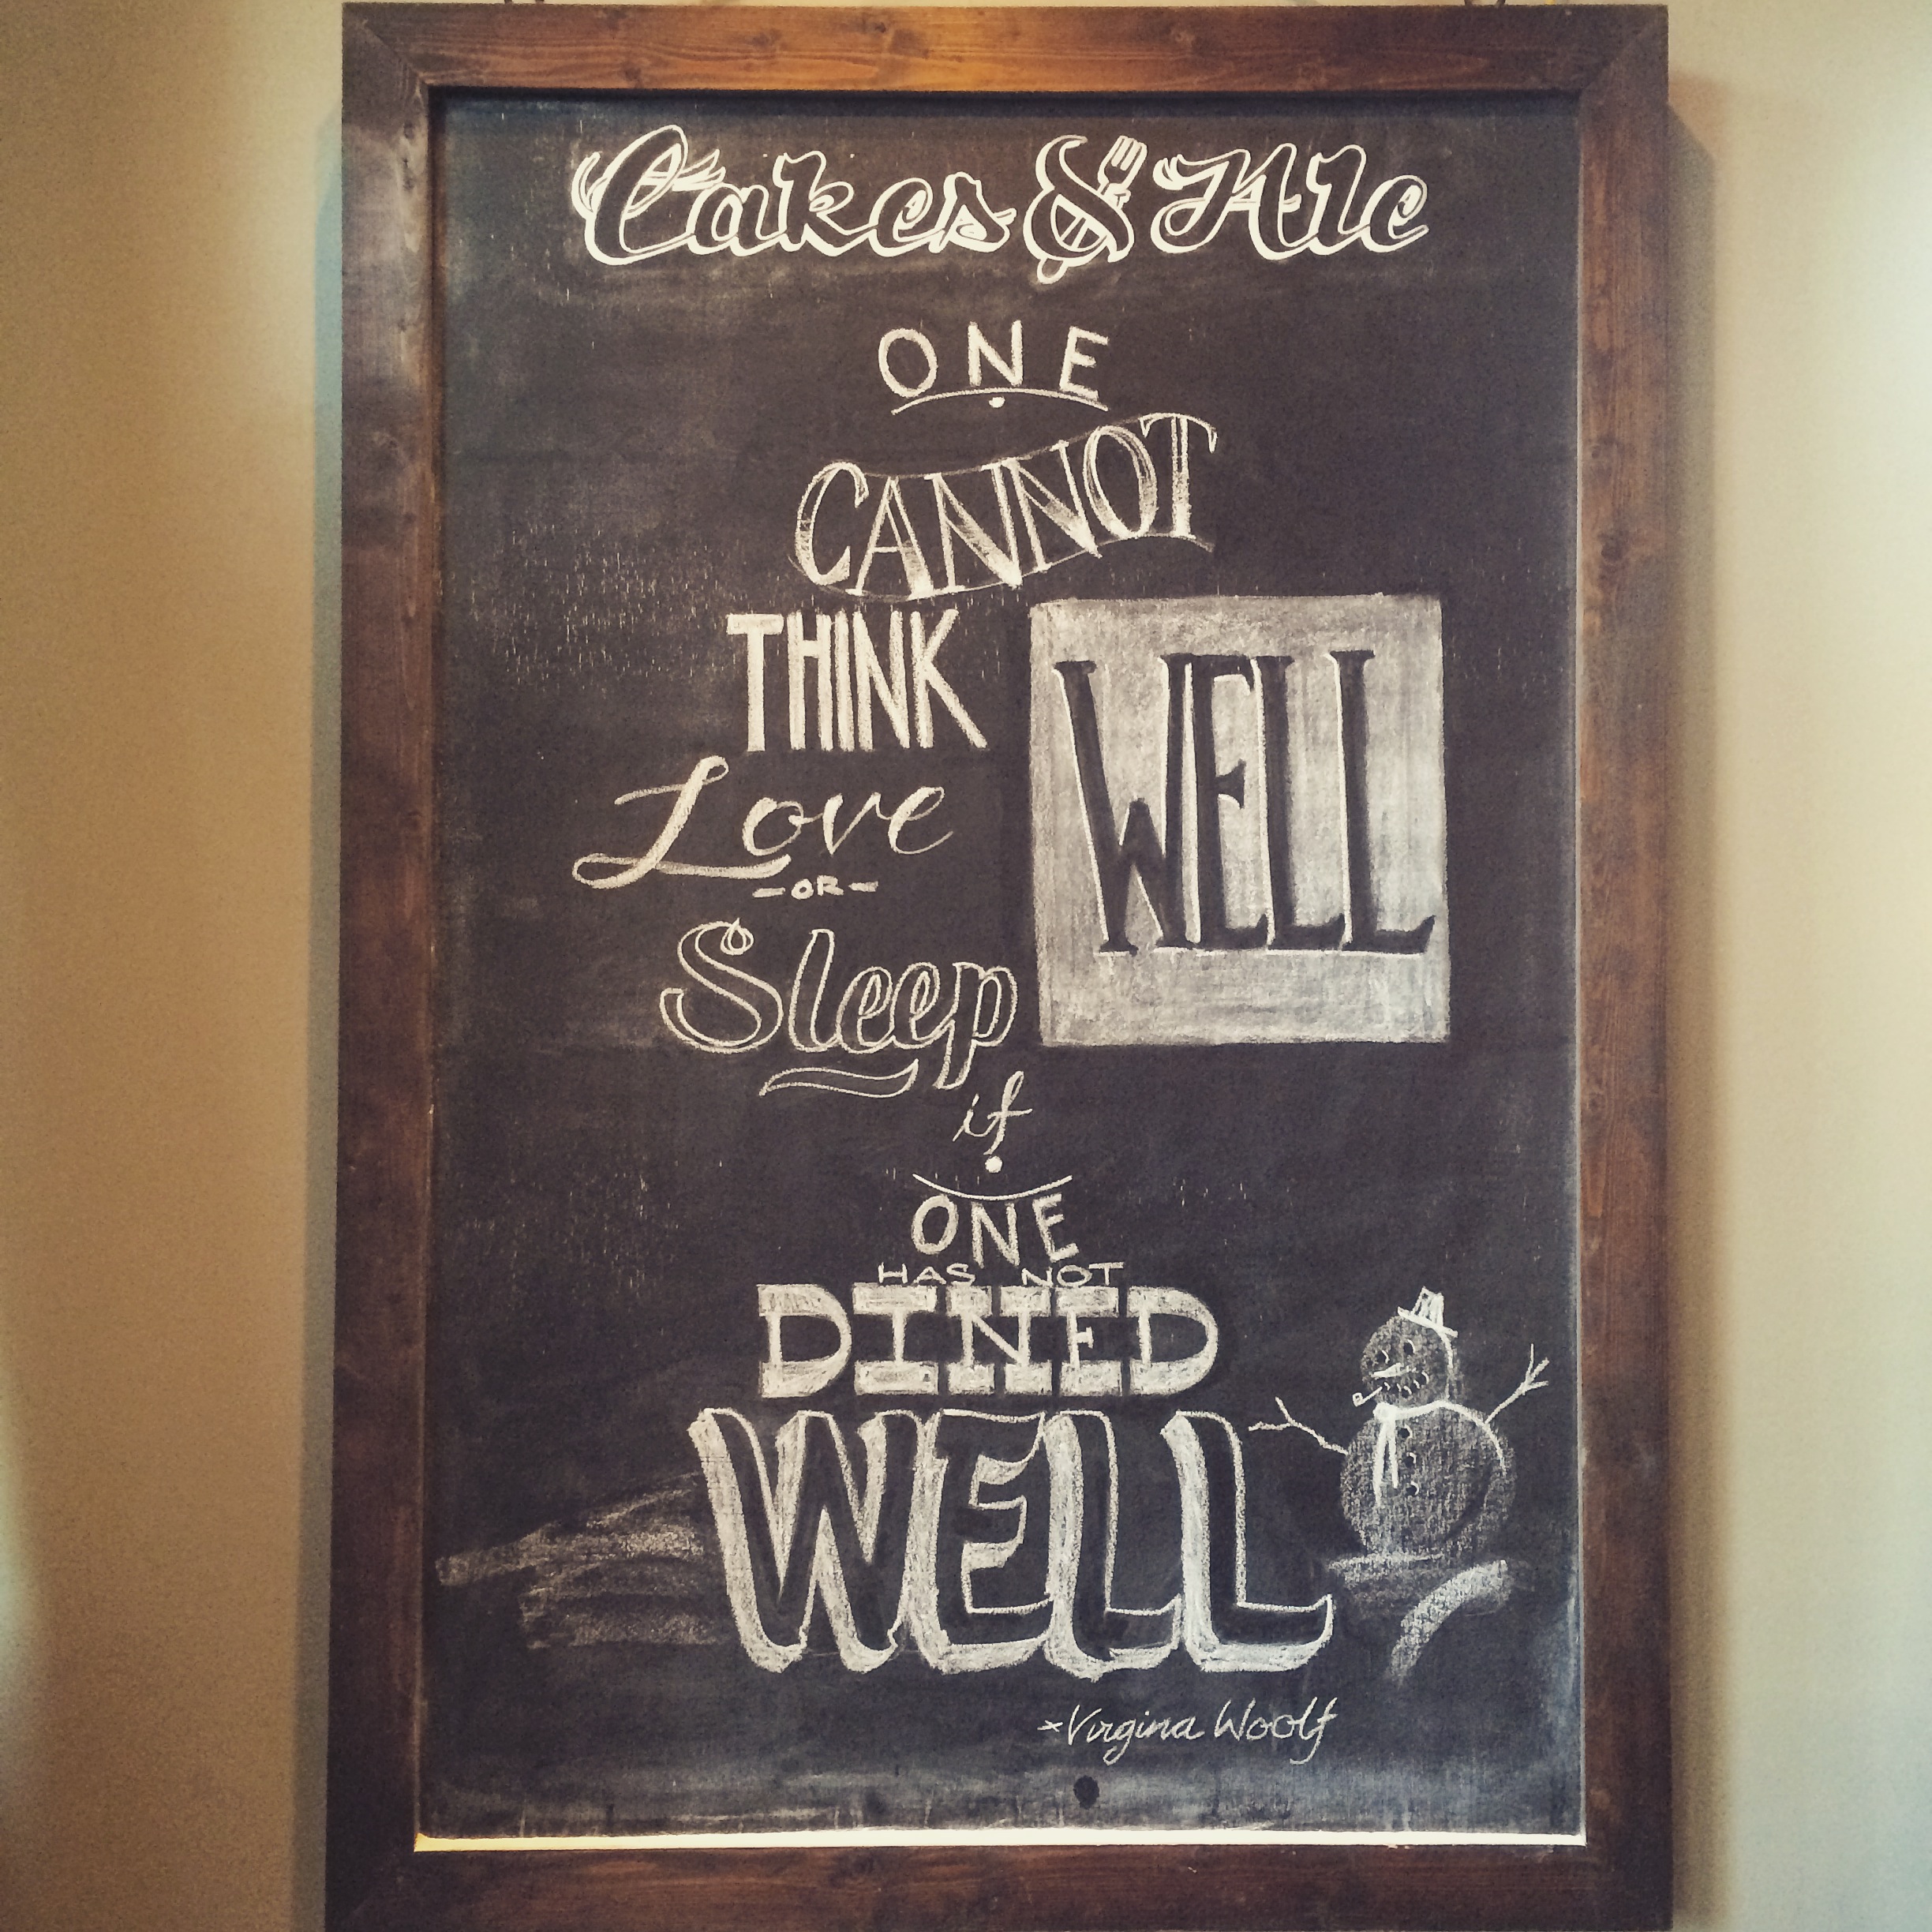 Cakes & Ale
ONE
CANNOT
THINK
Love
-OR-
Sleep
WELL
if
ONE
HAS NOT
DINED
WELL
-Virgina Woolf